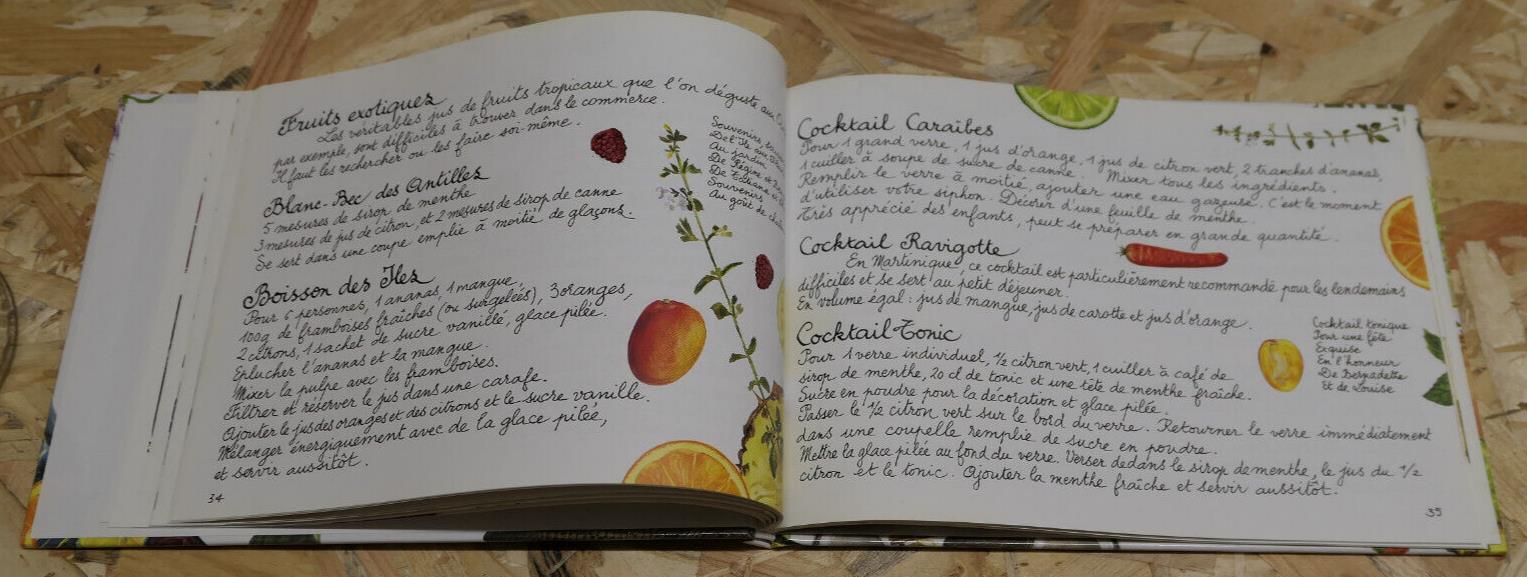 Fruits exotiques
Les véritables jus de fruits tropicaux que l'on déguste aux
par exemple, sont difficiles à trouver dans le commerce.
Il faut les rechercher ou les faire soi-même.
Souvenirs,
De l'Ile aux
Au jardin
De Régine et
De Tatiane et
Souvenirs
Au goût de
Blanc-Bec des Antilles
5 mesures de sirop de menthe
3 mesures de jus de citron, et 2 mesures de sirop de canne
Se sert dans une coupe emplie à moitié de glaçons.
Boisson des Iles
Pour 6 personnes, 1 ananas, 1 mangue,
100g de framboises fraîches (ou surgelées), 3 oranges,
2 citrons, 1 sachet de sucre vanillé, glace pilée.
Eplucher l'ananas et la mangue.
Mixer la pulpe avec les framboises.
Filtrer et réserver le jus dans une carafe.
Ajouter le jus des oranges et des citrons et le sucre vanille.
Mélanger énergiquement avec de la glace pilée,
et servir aussitôt.
34
Cocktail Caraïbes
Pour 1 grand verre, 1 jus d'orange, 1 jus de citron vert, 2 tranches d'ananas,
1 cuiller à soupe de sucre de canne. Mixer tous les ingrédients.
Remplir le verre à moitié, ajouter une eau gazeuse. C'est le moment
d'utiliser votre siphon. Décorer d'une feuille de menthe.
Très apprécié des enfants, peut se préparer en grande quantité.
Cocktail Ravigotte
En Martinique, ce cocktail est particulièrement recommandé pour les lendemains
difficiles et se sert au petit déjeuner.
En volume égal : jus de mangue, jus de carotte et jus d'orange.
Cocktail-Tonic
Pour 1 verre individuel, ½ citron vert, 1 cuiller à café de
sirop de menthe, 20 cl de tonic et une tête de menthe fraîche.
Sucre en poudre pour la décoration et glace pilée.
Passer le ½ citron vert sur le bord du verre. Retourner le verre immédiatement
dans une coupelle remplie de sucre en poudre.
Mettre la glace pilée au fond du verre. Verser dedans le sirop de menthe, le jus du ½
citron et le tonic. Ajouter la menthe fraîche et servir aussitôt.
Cocktail tonique
Pour une fête
Exquise
En l'honneur
De Bernadette
Et de Louise
35